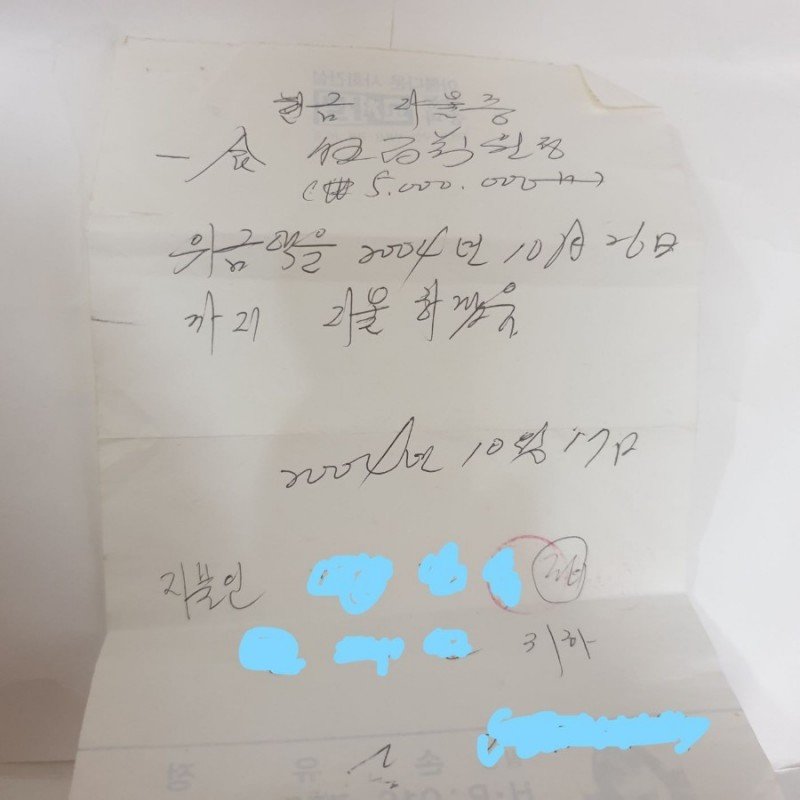 현금 지불증
一金 伍百萬 원정
(₩ 5.000.000)
위금액을 2004년 10月 26日
까지 지불 하겠음
2004년 10월 17日
지불인
귀하